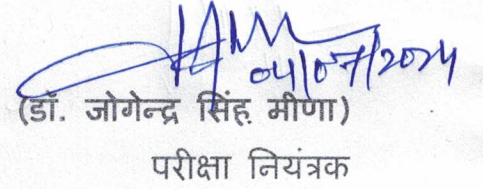 04/07/2024
(डॉ. जोगेन्द्र सिंह मीणा)
परीक्षा नियंत्रक